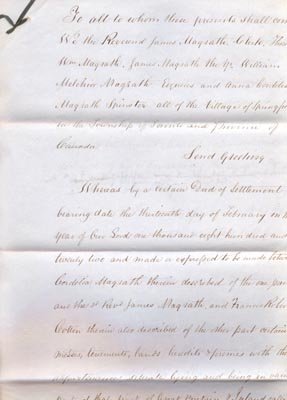 To all to whom these presents shall com
We the Reverend James Magrath, Clerk, Tho
Wm Magrath, James Magrath the Yr William
Melchior Magrath. Esquires and Anna Cordelia
Magrath Spinster all of the Village of Springf
in the Township of Toronto and Province of
Canada.
Send Greeting
Whereas by a certain Deed of Settlement
bearing date the thirteenth day of February in t
year of Our Lord one thousand eight hundred and
twenty two and made or expressed to be made betw
Cordelia Magrath therein described of the one par
and the sd Revd James Magrath, and Francis
therein also described of the other part certain
lands & premes with the
lying and being in
that part of Great Britain & Ireland